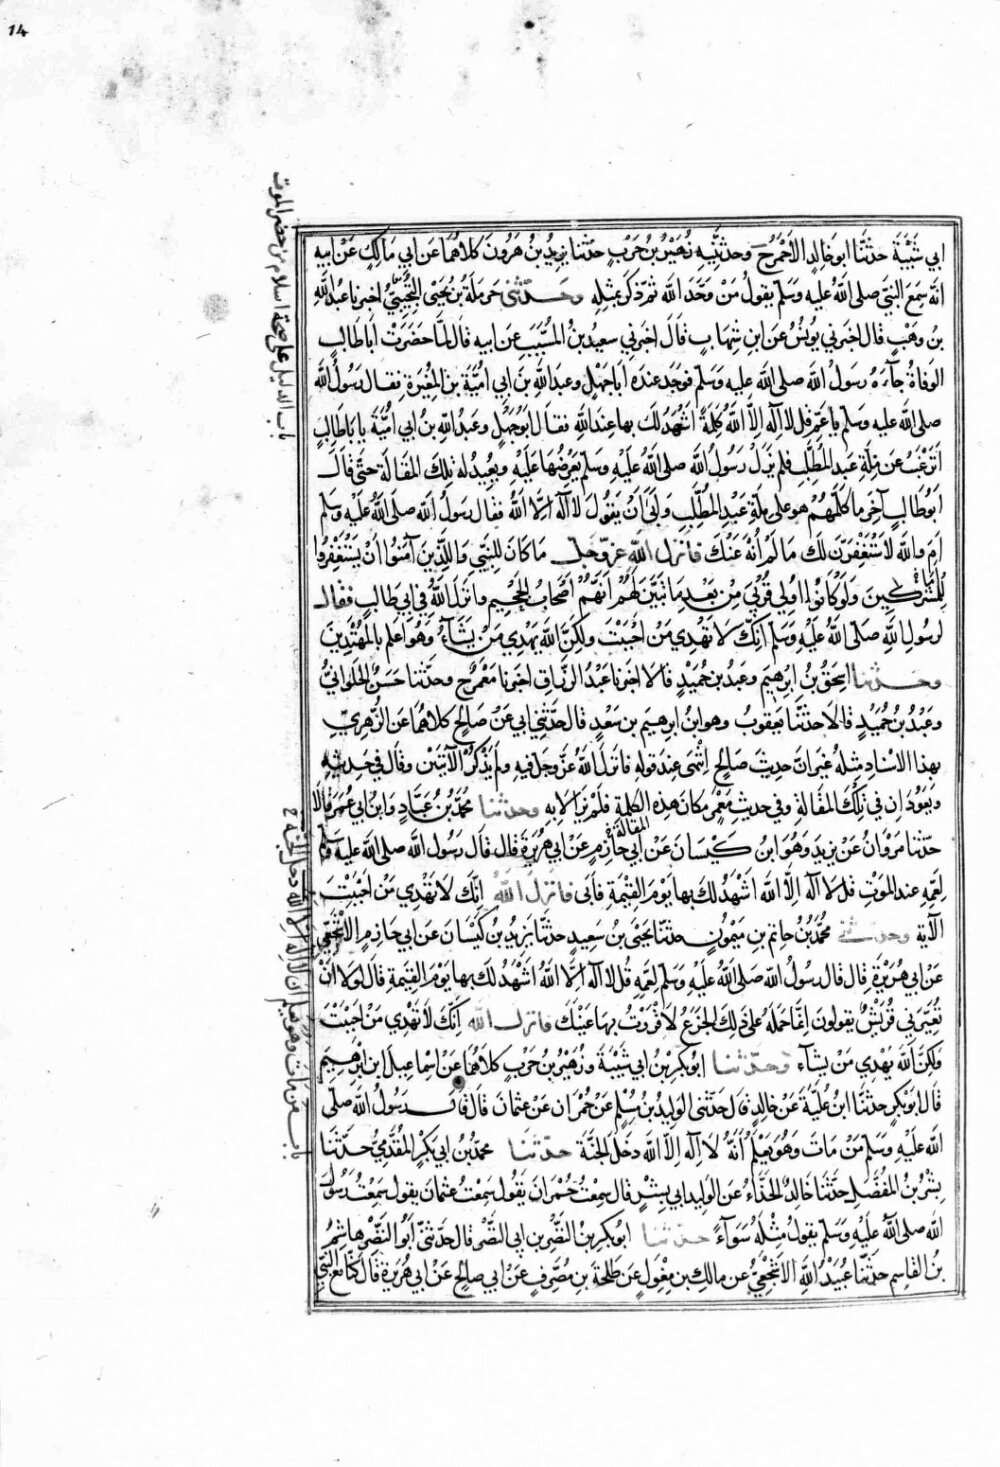 14
ابي شيبة حدثنا ابو خالد الاحمر ح وحدثنيه زهير بن حرب حدثنا يزيد بن هرون كلاهما عن ابي مالك عن ابيه
انه سمع النبي صلى الله عليه وسلم يقول من وحد الله ثم ذكر بمثله وحدثني حرملة بن يحيى التجيبي اخبرنا عبد الله
بن وهب قال اخبرني يونس عن ابن شهاب قال اخبرني سعيد بن المسيب عن ابيه قال لما حضرت ابا طالب
الوفاة جاءه رسول الله صلى الله عليه وسلم فوجد عنده ابا جهل وعبد الله بن ابي امية بن المغيرة فقال رسول الله
صلى الله عليه وسلم يا عم قل لا اله الا الله كلمة اشهد لك بها عند الله فقال ابو جهل وعبد الله بن ابي امية يا با طالب
اترغب عن ملة عبد المطلب فلم يزل رسول الله صلى الله عليه وسلم يعرضها عليه ويعيد له تلك المقالة حتى قال
ابو طالب آخر ما كلمهم هو على ملة عبد المطلب وابى ان يقول لا اله الا الله فقال رسول الله صلى الله عليه وسلم
ام والله لاستغفرن لك ما لم انه عنك فانزل الله عز وجل ما كان للنبي والذين آمنوا ان يستغفروا
للمشركين ولو كانوا اولي قربى من بعد ما تبين لهم انهم اصحاب الجحيم وانزل الله في ابي طالب فقال
لرسول الله صلى الله عليه وسلم انك لا تهدي من احببت ولكن الله يهدي من يشاء وهو اعلم بالمهتدين
وحدثنا اسحق بن ابرهيم وعبد بن حميد قالا اخبرنا عبد الرزاق اخبرنا معمر ح وحدثنا حسن الحلواني
وعبد بن حميد قالا حدثنا يعقوب وهو ابن ابرهيم بن سعد قال حدثني ابي عن صالح كلاهما عن الزهري
بهذا الاسناد مثله غير ان حديث صالح انتهى عند قوله فانزل الله عز وجل فيه ولم يذكر الآيتين وقال في حديثه
ويعودان في تلك المقالة وفي حديث معمر مكان هذه الكلمة فلم يزالا به وحدثنا محمد بن عباد وابن ابي عمر قالا
المقالة
حدثنا مروان عن يزيد وهو ابن كيسان عن ابي حازم عن ابي هريرة قال قال رسول الله صلى الله عليه وسلم
لعمه عند الموت قل لا اله الا الله اشهد لك بها يوم القيمة فابى فانزل الله انك لا تهدي من احببت
الآية وحدثني محمد بن حاتم بن ميمون حدثنا يحيى بن سعيد حدثنا يزيد بن كيسان عن ابي حازم الاشجعي
عن ابي هريرة قال قال رسول الله صلى الله عليه وسلم لعمه قل لا اله الا الله اشهد لك بها يوم القيمة قال لولا ان
تعيرني قريش يقولون انما حمله على ذلك الجزع لاقررت بها عينك فانزل الله انك لا تهدي من احببت
ولكن الله يهدي من يشاء وحدثنا ابو بكر بن ابي شيبة وزهير بن حرب كلاهما عن اسماعيل ابن ابرهيم
قال ابو بكر حدثنا ابن علية عن خالد قال حدثني الوليد بن مسلم عن حمران عن عثمان قال قال رسول الله صلى
الله عليه وسلم من مات وهو يعلم انه لا اله الا الله دخل الجنة حدثنا محمد بن ابي بكر المقدمي حدثنا
بشر بن المفضل حدثنا خالد الحذاء عن الوليد ابي بشر قال سمعت حمران يقول سمعت عثمان يقول سمعت رسول
الله صلى الله عليه وسلم يقول مثله سواء حدثنا ابو بكر بن النضر بن ابي النضر قال حدثني ابو النضر هاشم
بن القاسم حدثنا عبيد الله الاشجعي عن مالك بن مغول عن طلحة بن مصرف عن ابي صالح عن ابي هريرة قال كنا مع النبي
باب الدليل على صحة اسلام من حضر الموت
باب من مات وهو يعلم ان لا اله الا الله دخل الجنة